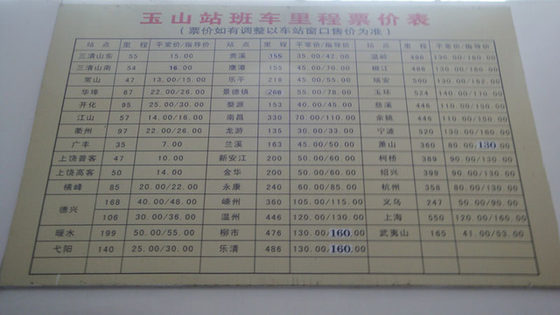 玉山站班车里程票价表
(票价如有调整以车站窗口售价为准)
站 点 里 程 平常价/指导价 站 点 里 程 平常价/指导价 站 点 里 程 平常价/指导价
三清山东 55 15.00 贵溪 155 35.00/42.00 温岭 496 130.00/160.00
三清山南 54 16.00 鹰潭 155 45.00/50.00 椒江 486 130.00/160.00
常山 47 13.00/15.00 乐平 218 45.00/55.00 瑞安 500 130.00/152.00
华埠 67 22.00/26.00 景德镇 268 55.00/78.00 玉环 524 140.00/170.00
开化 95 25.00/30.00 婺源 153 40.00/45.00 慈溪 446 110.00/150.00
江山 57 14.00/16.00 南昌 330 70.00/110.00 余姚 446 110.00/150.00
衢州 97 22.00/26.00 龙游 135 30.00/33.00 宁波 520 130.00/160.00
广丰 35 7.00 兰溪 163 45.00/50.00 萧山 360 80.00/130.00
上饶普客 47 10.00 新安江 200 50.00/60.00 柯桥 389 90.00/130.00
上饶高客 50 14.00 金华 200 50.00/60.00 绍兴 399 90.00/130.00
横峰 85 20.00/22.00 永康 240 60.00/85.00 杭州 358 80.00/130.00
德兴 168 40.00/48.00 嵊州 360 105.00/115.00 义乌 247 50.00/90.00
106 30.00/36.00 温州 446 120.00/130.00 上海 550 120.00/160.00
暖水 199 50.00/55.00 柳市 476 130.00/160.00 武夷山 165 41.00/53.00
弋阳 140 25.00/30.00 乐清 486 130.00/160.00